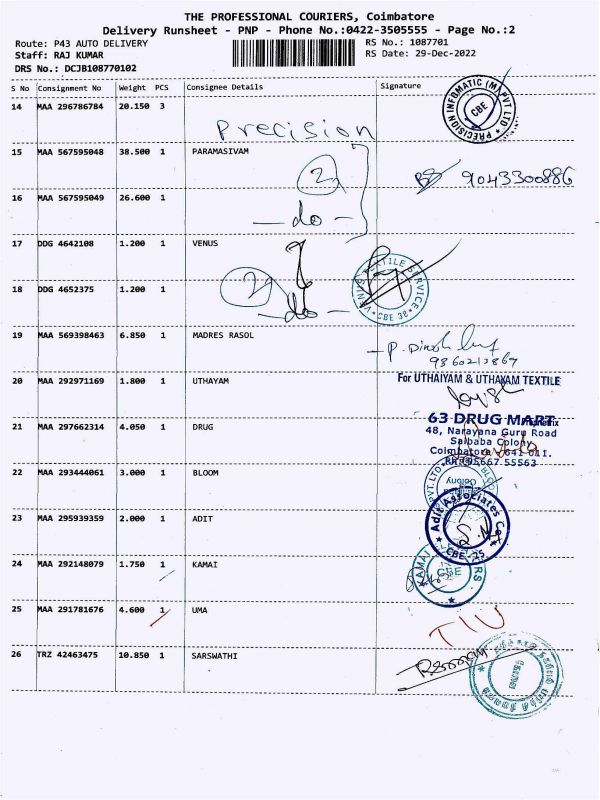 THE PROFESSIONAL COURIERS, Coimbatore
Delivery Runsheet - PNP - Phone No.:0422-3505555 - Page No.:2
Route: P43 AUTO DELIVERY RS No.: 1087701
Staff: RAJ KUMAR RS Date: 29-Dec-2022
DRS No.: DCJB108770102
S No Consignment No Weight PCS Consignee Details Signature
14 MAA 296786784 20.150 3
Precision
PRECISION INFOMATIC (M) PVT LTD
CBE
15 MAA 567595048 38.500 1 PARAMASIVAM
2
9043300886
16 MAA 567595049 26.600 1
- do -
17 DDG 4642108 1.200 1 VENUS
18 DDG 4652375 1.200 1
2
- do -
TEXTILE SERVICE
CBE 38
19 MAA 569398463 6.850 1 MADRES RASOL
P. Dinesh
20 MAA 292971169 1.800 1 UTHAYAM
For UTHAIYAM & UTHAYAM TEXTILE
21 MAA 297662314 4.050 1 DRUG
63 DRUG MART
48, Narayana Guru Road
Saibaba Colony
Coimbatore - 641 011.
55563
22 MAA 293444061 3.000 1 BLOOM
PVT. LTD.
Colony
23 MAA 295939359 2.000 1 ADIT
Adit Associates
CBE-25
24 MAA 292148079 1.750 1 KAMAI
KAMAI
CBE
25 MAA 291781676 4.600 1 UMA
TIU
26 TRZ 42463475 10.850 1 SARSWATHI